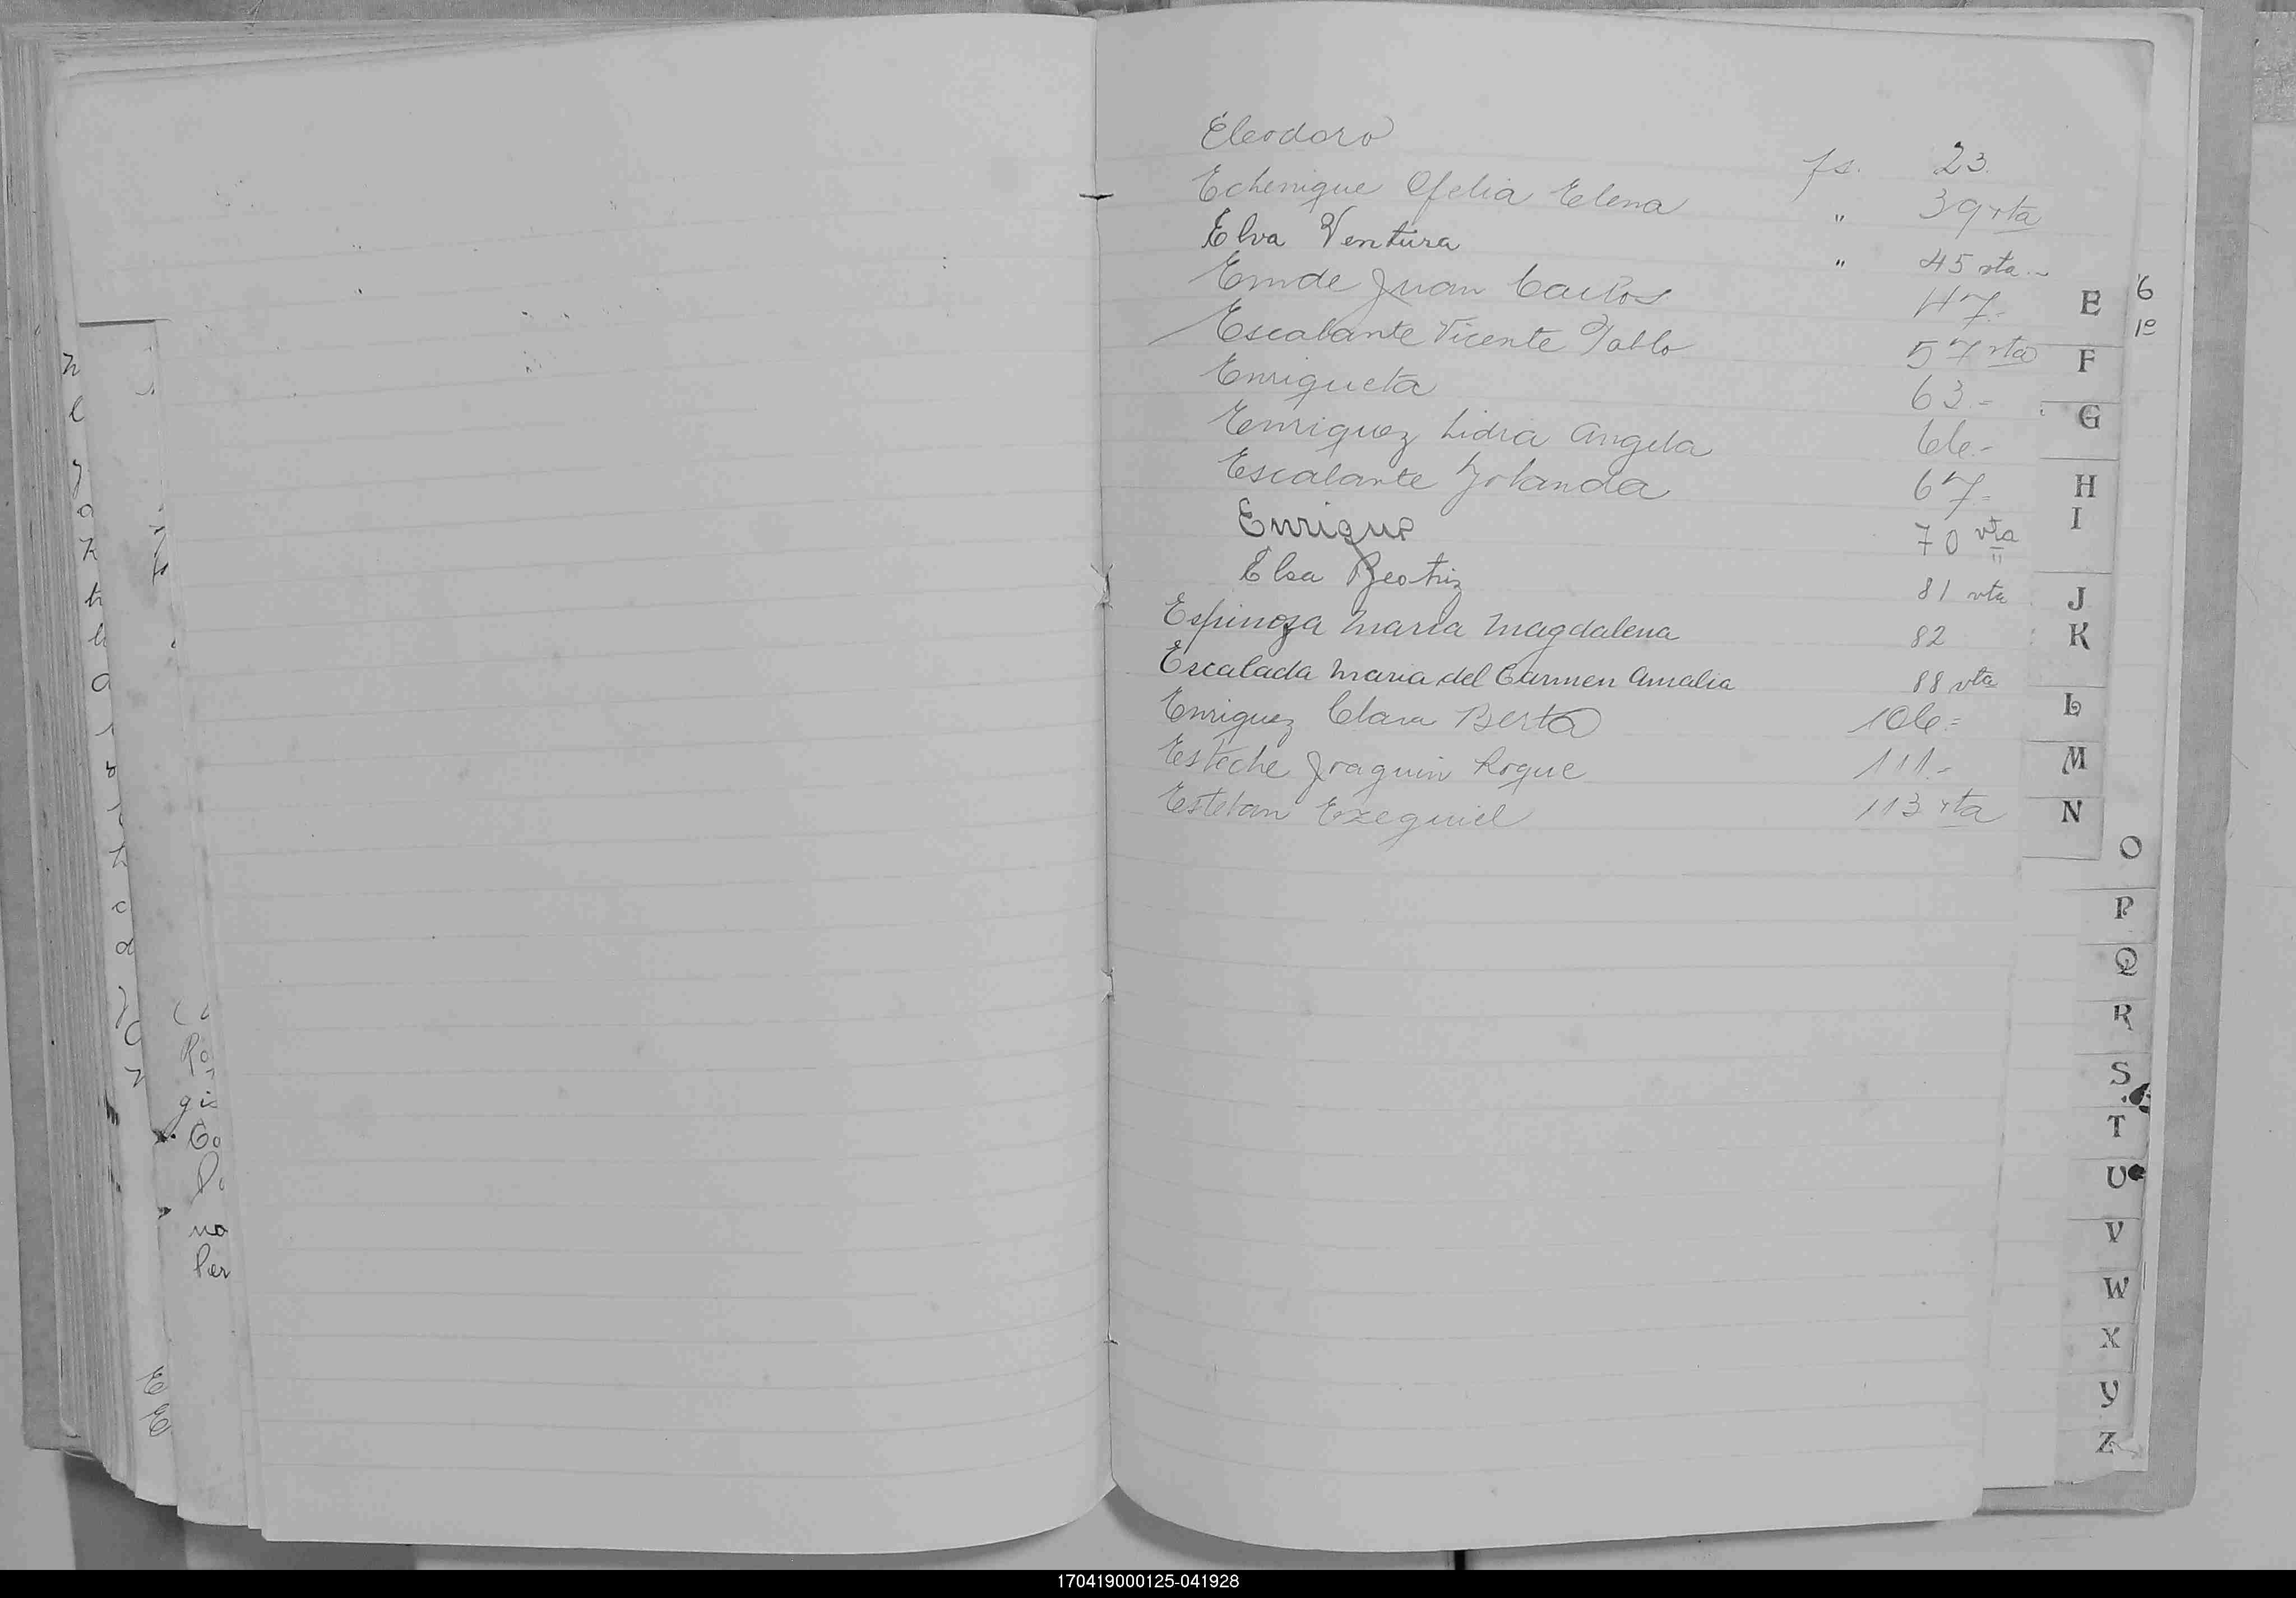 Eleodoro fs. 23.
Echenique Ofelia Elena " 39 vta
Elva Ventura " 45 vta.-
Emde Juan Carlos 47.-
Escalante Vicente Pablo 57 vta
Enriqueta 63.-
Enriquez Lidia Angela 66.-
Escalante Yolanda 67.-
Enrique 70 vta
Elsa Beatriz 81 vta
Espinoza Maria Magdalena 82
Escalada Maria del Carmen Amalia 88 vta
Enriquez Clara Berta 106=
Esteche Joaquin Roque 111.-
Esteban Ezequiel 113 vta
E
F
G
H
I
J
K
L
M
N
O
P
Q
R
S
T
U
V
W
X
Y
Z
170419000125-041928